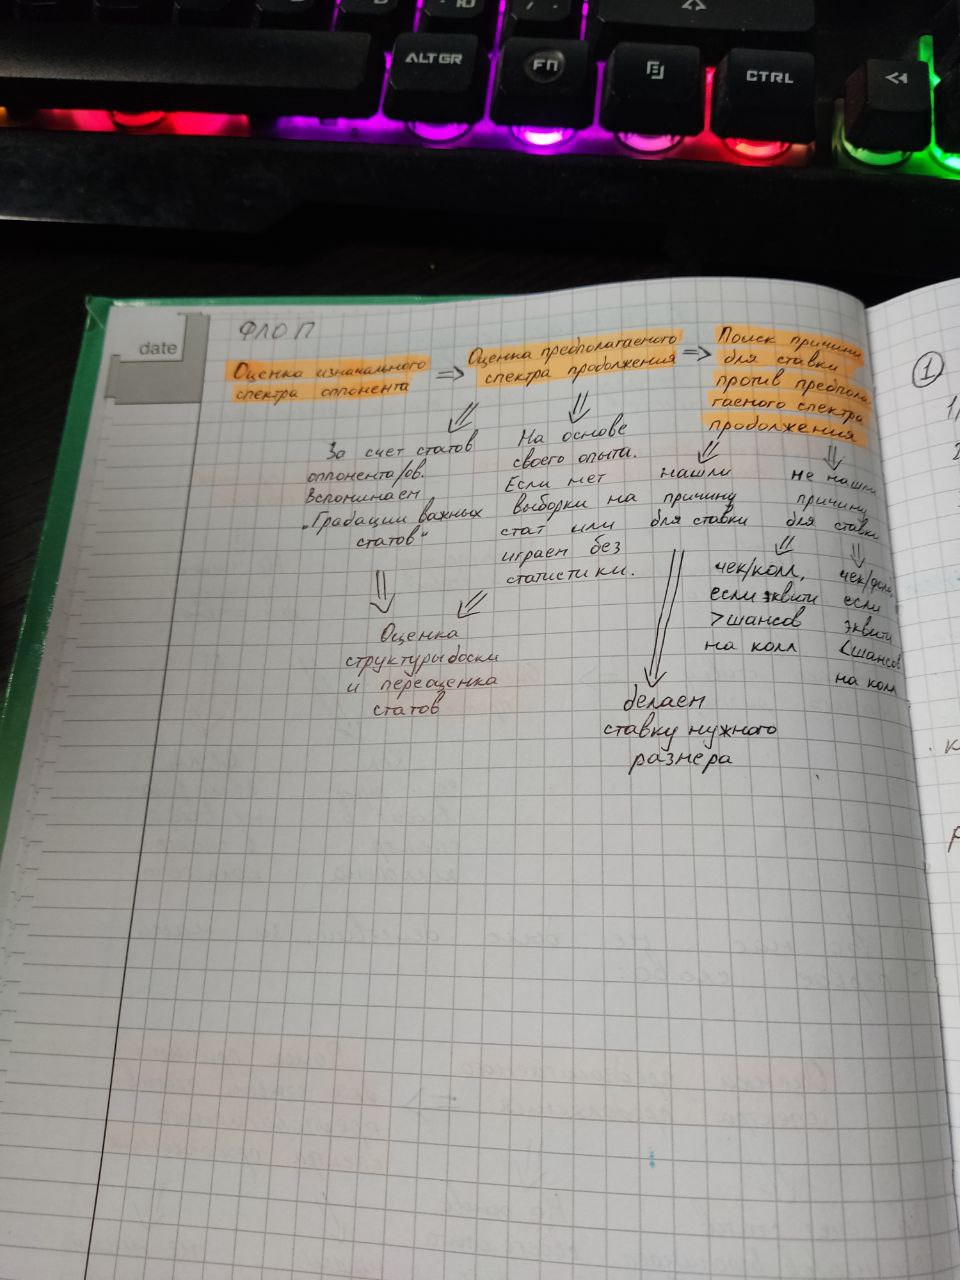 ALTGR
Fn
CTRL
date
ФЛОП
Оценка изначального
спектра оппонента
=>
Оценка предполагаемого
спектра продолжения
=>
Поиск причины
для ставки
против предпола
гаемого спектра
продолжения
За счет статов
оппонента/ов.
Вспоминаем
„Градации важных
статов“
На основе
своего опыта.
Если нет
выборки на
стат или
играем без
статистики.
Оценка
структуры доски
и переоценка
статов
нашли
причину
для ставки
делаем
ставку нужного
размера
не нашли
причину
для ставки
чек/колл,
если эквити
>шансов
на колл
чек/фолд,
если
эквити
<шансов
на колл
1